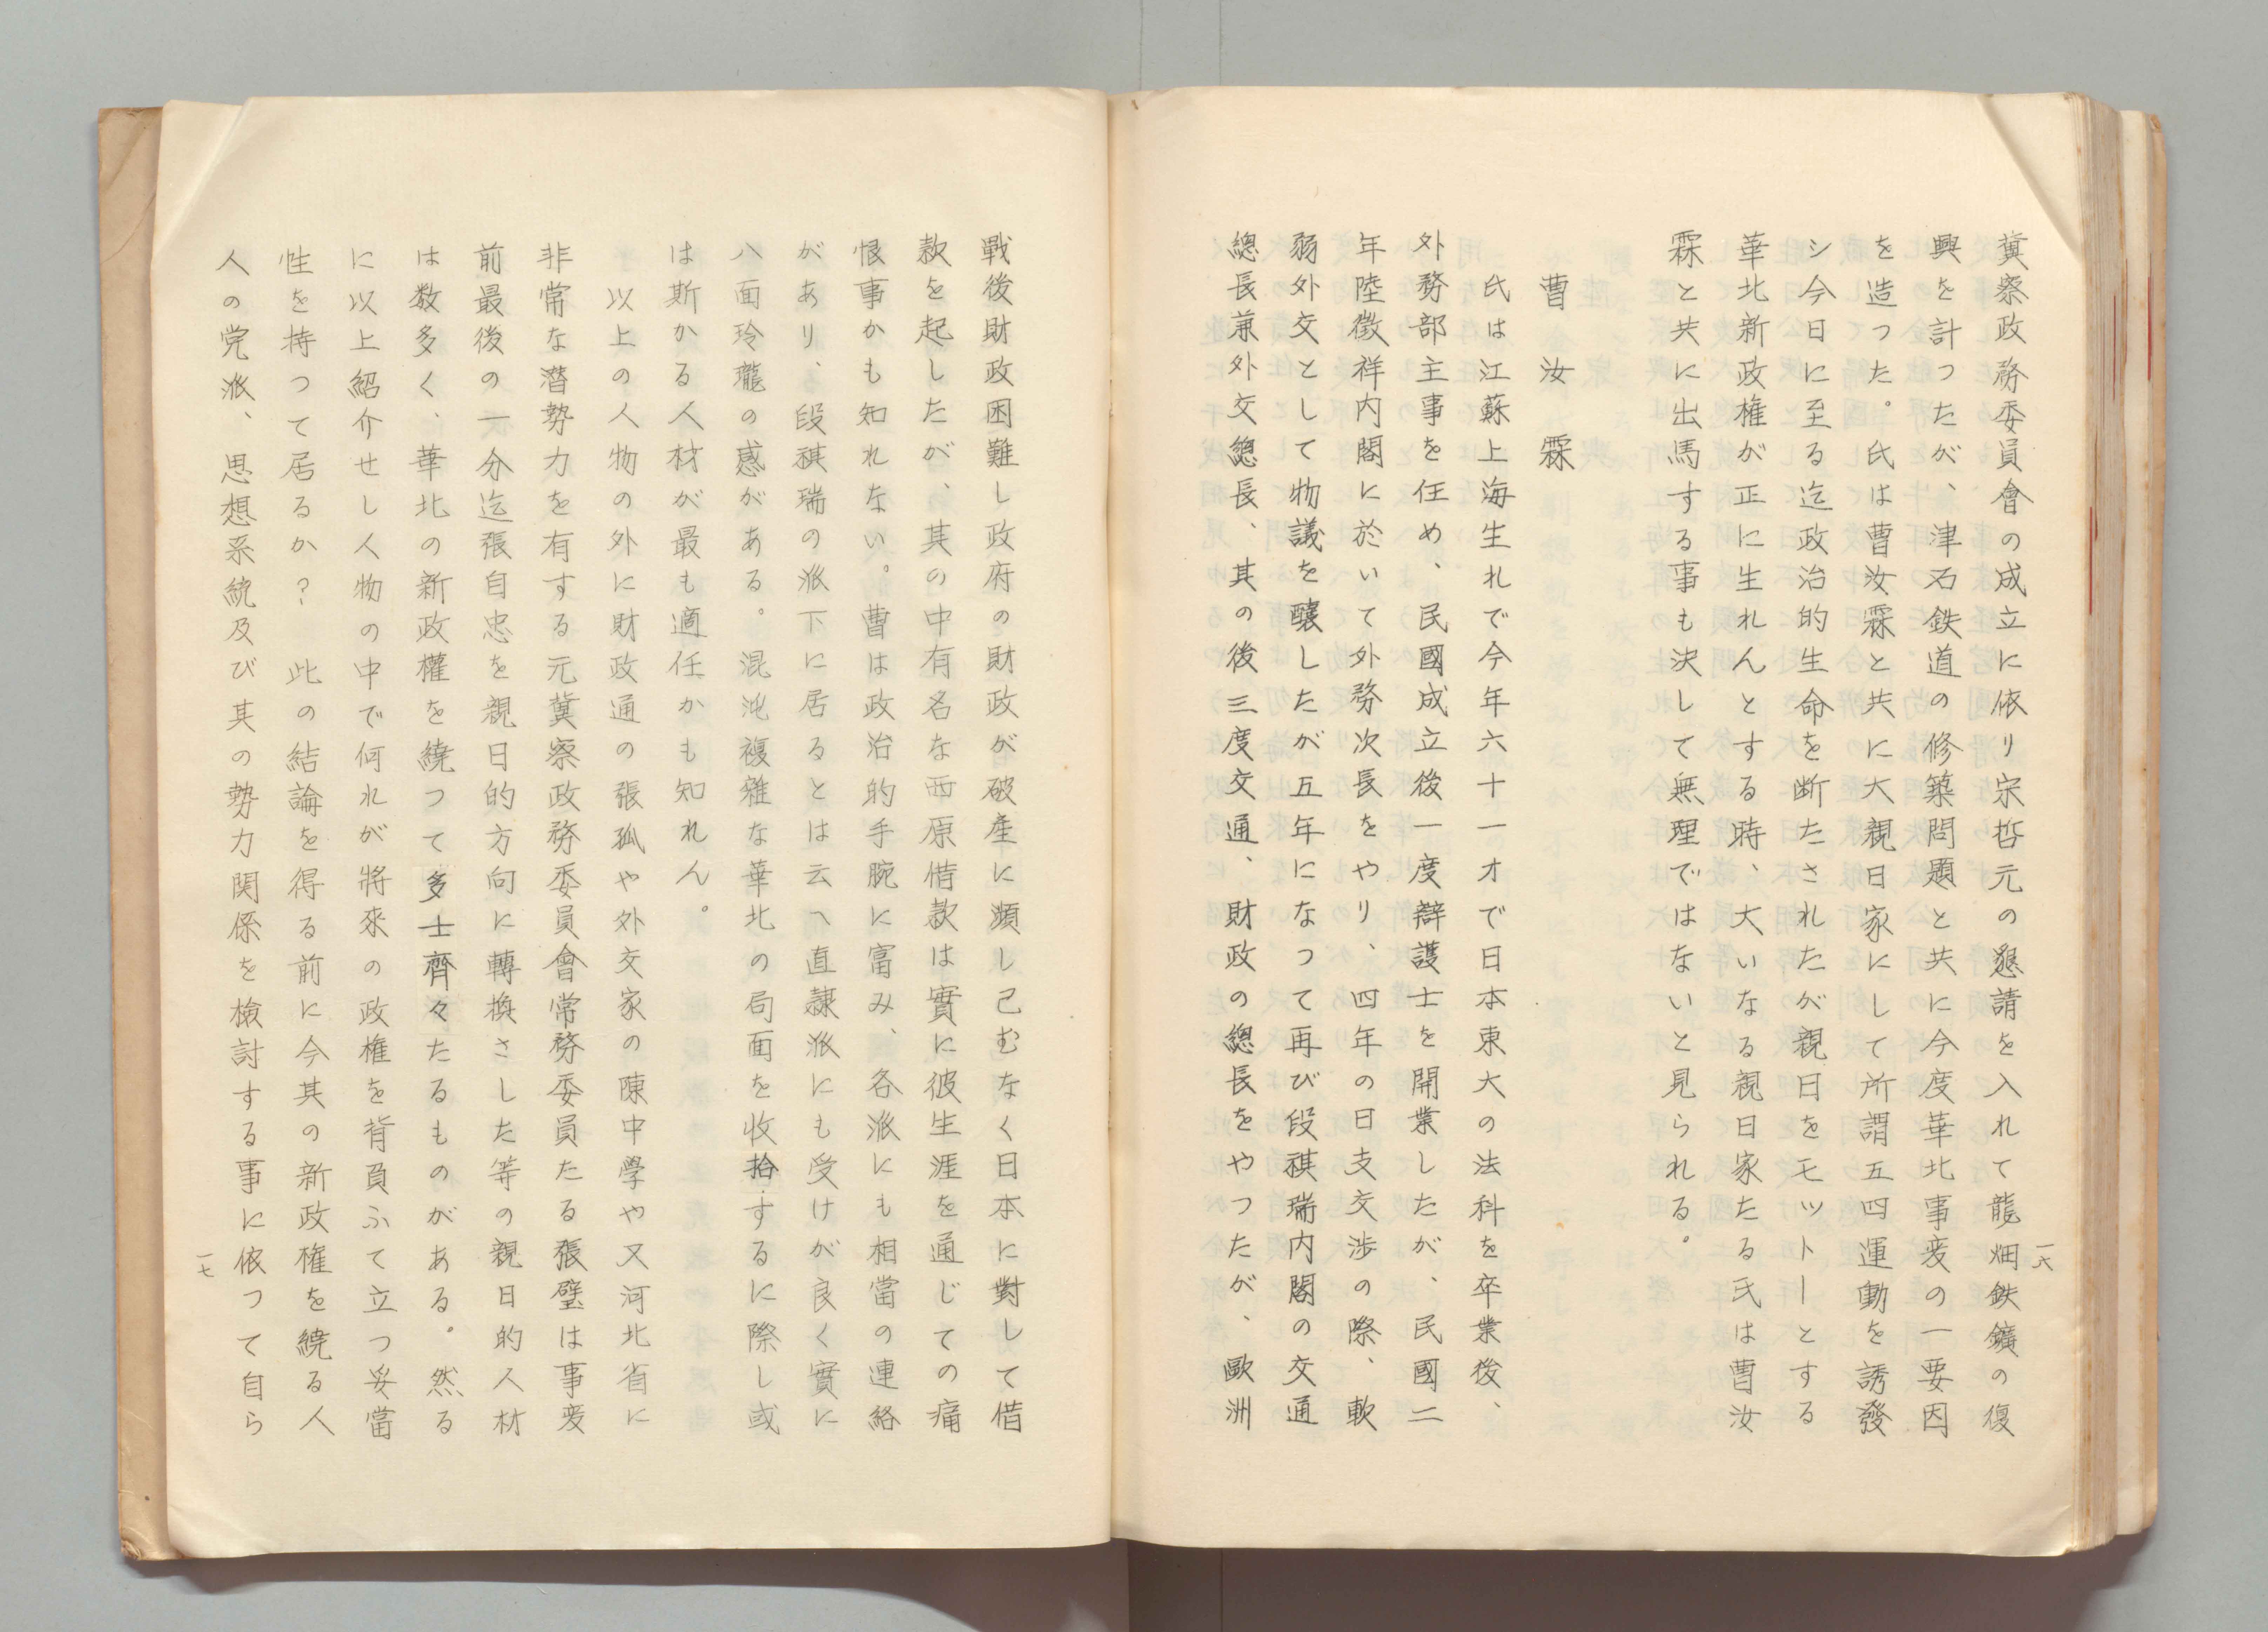 冀察政務委員會の成立に依り宋哲元の懇請を入れて龍烟鉄鑛の復
興を計つたが、津石鉄道の修築問題と共に今度華北事変の一要因
を造つた。氏は曹汝霖と共に大親日家にして所謂五四運動を誘發
シ今日に至る迄政治的生命を断たされたが親日をモットーとする
華北新政権が正に生れんとする時、大いなる親日家たる氏は曹汝
霖と共に出馬する事も決して無理ではないと見られる。
曹汝霖
氏は江蘇上海生れで今年六十一才で日本東大の法科を卒業後、
外務部主事を任め、民國成立後一度辯護士を開業したが、民國二
年陸徴祥内閣に於いて外務次長をやり、四年の日支交渉の際、軟
弱外交として物議を醸したが五年になつて再び段祺瑞内閣の交通
總長兼外交總長、其の後三度交通、財政の總長をやつたが、歐洲
一六
戰後財政困難し政府の財政が破産に瀕し己むなく日本に對して借
款を起したが、其の中有名な西原借款は實に彼生涯を通じての痛
恨事かも知れない。曹は政治的手腕に富み、各派にも相當の連絡
があり、段祺瑞の派下に居るとは云へ直隷派にも受けが良く實に
八面玲瓏の感がある。混沌複雜な華北の局面を收拾するに際し或
は斯かる人材が最も適任かも知れん。
以上の人物の外に財政通の張弧や外交家の陳中學や又河北省に
非常な潜勢力を有する元冀察政務委員會常務委員たる張璧は事変
前最後の一分迄張自忠を親日的方向に轉換さした等の親日的人材
は数多く、華北の新政權を繞つて多士齊々たるものがある。然る
に以上紹介せし人物の中で何れが將來の政権を背負ふて立つ妥當
性を持つて居るか？此の結論を得る前に今其の新政権を繞る人
人の党派、思想系統及び其の勢力関係を検討する事に依つて自ら
一七